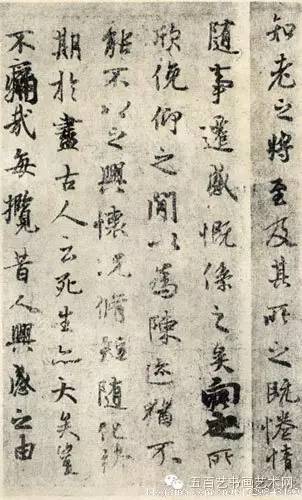 知老之将至及其所之既惓情
随事遷感慨係之矣向之所
欣俛仰之閒以為陳迹猶不
能不以之興懷况脩短随化終
期於盡古人云死生亦大矣豈
不痛哉每攬昔人興感之由
五百艺书画艺术网